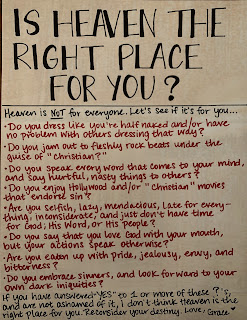 IS HEAVEN THE
RIGHT PLACE
FOR YOU?
Heaven is NOT for everyone. Let's see if it's for you...
• Do you dress like you're half naked and/or have
no problem with others dressing that way?
• Do you jam out to fleshly rock beats under the
guise of "christian?"
• Do you speak every word that comes to your mind,
and say hurtful, nasty things to others?
• Do you enjoy Hollywood and/or "christian" movies
that endorse sin?
• Are you selfish, lazy, mendacious, late for every-
thing, inconsiderate, and just don't have time
for God, His Word, or His people?
• Do you say that you love God with your mouth,
but your actions speak otherwise?
• Are you eaten up with pride, jealousy, envy, and
bitterness?
• Do you embrace sinners, and look forward to your
own dark iniquities?
If you have answered "YES" to 1 or more of these ?'s,
and are not ashamed of it, i don't think Heaven is the
right place for you. Reconsider your destiny. Love, Grace ♡